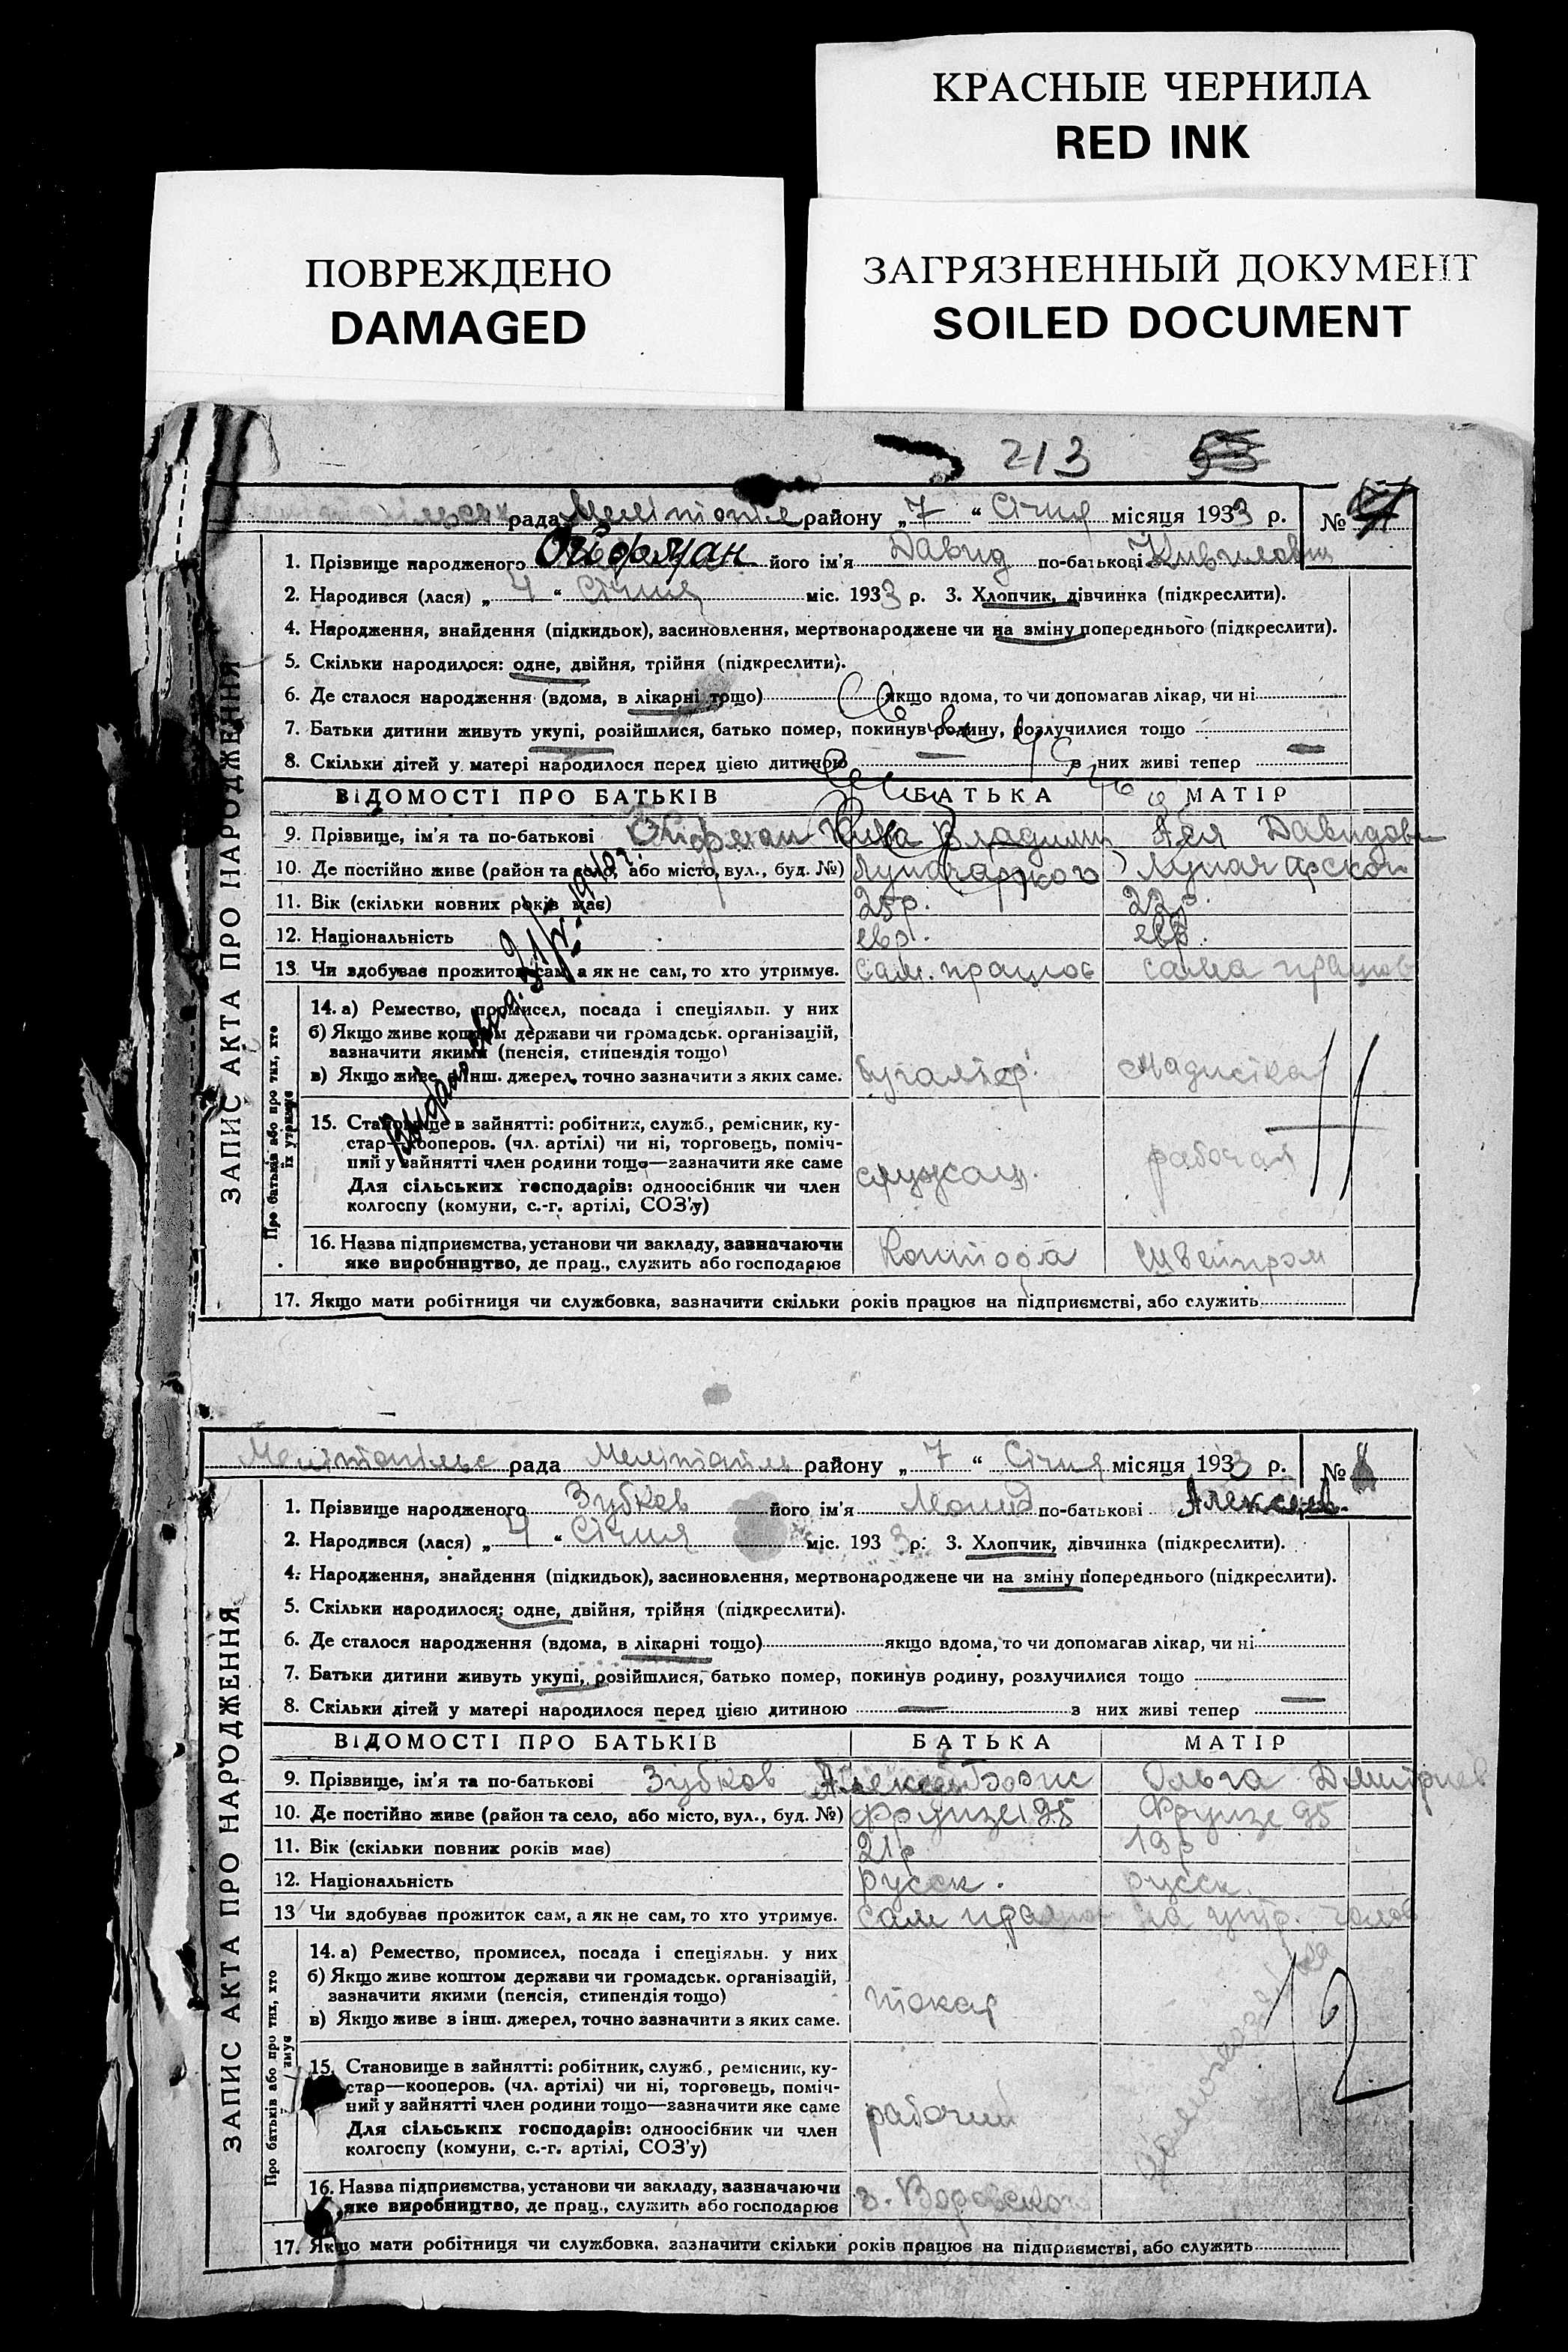 КРАСНЫЕ ЧЕРНИЛА
RED INK
ПОВРЕЖДЕНО
DAMAGED
ЗАГРЯЗНЕННЫЙ ДОКУМЕНТ
SOILED DOCUMENT
213 53
рада Мелітопіл району „7“ Січня місяця 1933 р. №
ЗАПИС АКТА ПРО НАРОДЖЕННЯ
1. Прізвище народженого Ойфман його ім'я Давид по-батькові
2. Народився (лася) „4“ Січня міс. 1933 р. 3. Хлопчик, дівчинка (підкреслити).
4. Народження, знайдення (підкидьок), засиновлення, мертвонароджене чи на зміну попереднього (підкреслити).
5. Скільки народилося: одне, двійня, трійня (підкреслити).
6. Де сталося народження (вдома, в лікарні тощо) якщо вдома, то чи допомагав лікар, чи ні
7. Батьки дитини живуть укупі, розійшлися, батько помер, покинув родину, розлучилися тощо
8. Скільки дітей у матері народилося перед цією дитиною — з них живі тепер —
ВІДОМОСТІ ПРО БАТЬКІВ БАТЬКА МАТІР
9. Прізвище, ім'я та по-батькові Ойфман Давидовн
10. Де постійно живе (район та село, або місто, вул., буд. №) Луначарского Луначарской
11. Вік (скільки повних років має) 25р. 22р.
12. Національність евр. евр.
13. Чи здобував прожиток сам, а як не сам, то хто утримує. сам. працює сама працює
Про батьків або про тих, хто їх утримує
14. а) Ремество, промисел, посада і спеціяльн. у них
б) Якщо живе коштом держави чи громадськ. організацій,
зазначити якими (пенсія, стипендія тощо)
в) Якщо живе з інш. джерел, точно зазначити з яких саме. бугалтер модистка
11
15. Становище в зайнятті: робітник, служб., ремісник, ку-
стар—кооперов. (чл. артілі) чи ні, торговець, поміч-
ний у зайнятті член родини тощо—зазначити яке саме служащ. рабочая
Для сільських господарів: одноосібник чи член
колгоспу (комуни, с.-г. артілі, СОЗ'у)
16. Назва підприємства, установи чи закладу, зазначаючи
яке виробництво, де прац., служить або господарює Контора Швейпром
17. Якщо мати робітниця чи службовка, зазначити скільки років працює на підприємстві, або служить
Мелітопільс рада Мелітопіль району „7“ Січня місяця 1933 р. №
ЗАПИС АКТА ПРО НАРОДЖЕННЯ
1. Прізвище народженого Зубков його ім'я Леонид по-батькові Алексеев.
2. Народився (лася) „4“ Січня міс. 1933 р. 3. Хлопчик, дівчинка (підкреслити).
4. Народження, знайдення (підкидьок), засиновлення, мертвонароджене чи на зміну попереднього (підкреслити).
5. Скільки народилося: одне, двійня, трійня (підкреслити).
6. Де сталося народження (вдома, в лікарні тощо) якщо вдома, то чи допомагав лікар, чи ні
7. Батьки дитини живуть укупі, розійшлися, батько помер, покинув родину, розлучилися тощо
8. Скільки дітей у матері народилося перед цією дитиною — з них живі тепер —
ВІДОМОСТІ ПРО БАТЬКІВ БАТЬКА МАТІР
9. Прізвище, ім'я та по-батькові Зубков Алексей Борис Ольга Дмитриев
10. Де постійно живе (район та село, або місто, вул., буд. №) Фрунзе 95 Фрунзе 95
11. Вік (скільки повних років має) 21р 19р
12. Національність русск. русск.
13 Чи здобував прожиток сам, а як не сам, то хто утримує. сам працює на утр. чолов
Про батьків або про тих, хто
14. а) Ремество, промисел, посада і спеціяльн. у них
б) Якщо живе коштом держави чи громадськ. організацій,
зазначити якими (пенсія, стипендія тощо)
в) Якщо живе з інш. джерел, точно зазначити з яких саме. токар
12
15. Становище в зайнятті: робітник, служб., ремісник, ку-
стар—кооперов. (чл. артілі) чи ні, торговець, поміч-
ний у зайнятті член родини тощо—зазначити яке саме рабочий
Для сільських господарів: одноосібник чи член
колгоспу (комуни, с.-г. артілі, СОЗ'у)
16. Назва підприємства, установи чи закладу, зазначаючи
яке виробництво, де прац., служить або господарює з. Воровского
17. Якщо мати робітниця чи службовка, зазначити скільки років працює на підприємстві, або служить